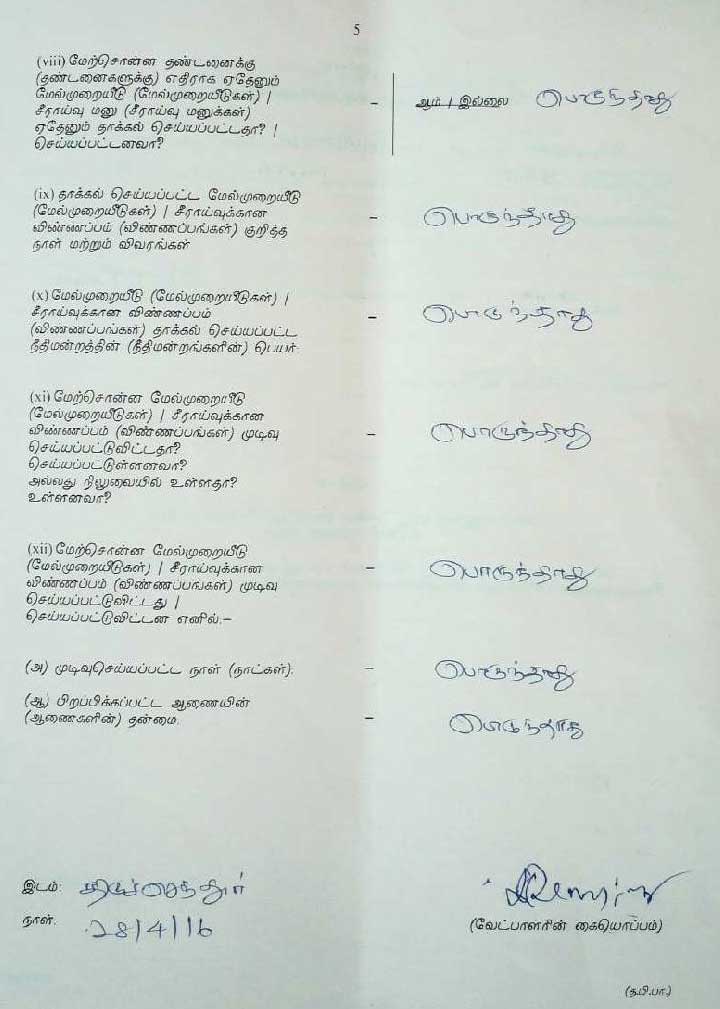 5
(viii) மேற்சொன்ன தண்டனைக்கு
(தண்டனைகளுக்கு) எதிராக ஏதேனும்
மேல்முறையீடு (மேல்முறையீடுகள்) |
சீராய்வு மனு (சீராய்வு மனுக்கள்) – ஆம் / இல்லை பொருந்தாது
ஏதேனும் தாக்கல் செய்யப்பட்டதா? |
செய்யப்பட்டனவா?
(ix) தாக்கல் செய்யப்பட்ட மேல்முறையீடு
(மேல்முறையீடுகள்) | சீராய்வுக்கான – பொருந்தாது
விண்ணப்பம் (விண்ணப்பங்கள்) குறித்த
நாள் மற்றும் விவரங்கள்
(x) மேல்முறையீடு (மேல்முறையீடுகள்) |
சீராய்வுக்கான விண்ணப்பம் – பொருந்தாது
(விண்ணப்பங்கள்) தாக்கல் செய்யப்பட்ட
நீதிமன்றத்தின் (நீதிமன்றங்களின்) பெயர்.
(xi) மேற்சொன்ன மேல்முறையீடு
(மேல்முறையீடுகள்) | சீராய்வுக்கான
விண்ணப்பம் (விண்ணப்பங்கள்) முடிவு – பொருந்தாது
செய்யப்பட்டுவிட்டதா?
செய்யப்பட்டுள்ளனவா?
அல்லது நிலுவையில் உள்ளதா?
உள்ளனவா?
(xii) மேற்சொன்ன மேல்முறையீடு
(மேல்முறையீடுகள்) | சீராய்வுக்கான – பொருந்தாது
விண்ணப்பம் (விண்ணப்பங்கள்) முடிவு
செய்யப்பட்டுவிட்டது |
செய்யப்பட்டுவிட்டன எனில்.–
(அ) முடிவுசெய்யப்பட்ட நாள் (நாட்கள்). – பொருந்தாது
(ஆ) பிறப்பிக்கப்பட்ட ஆணையின்
(ஆணைகளின்) தன்மை. – பொருந்தாது
இடம்: திருச்செந்தூர்
நாள். 28/4/16
(வேட்பாளரின் கையொப்பம்)
(த.பி.பா.)